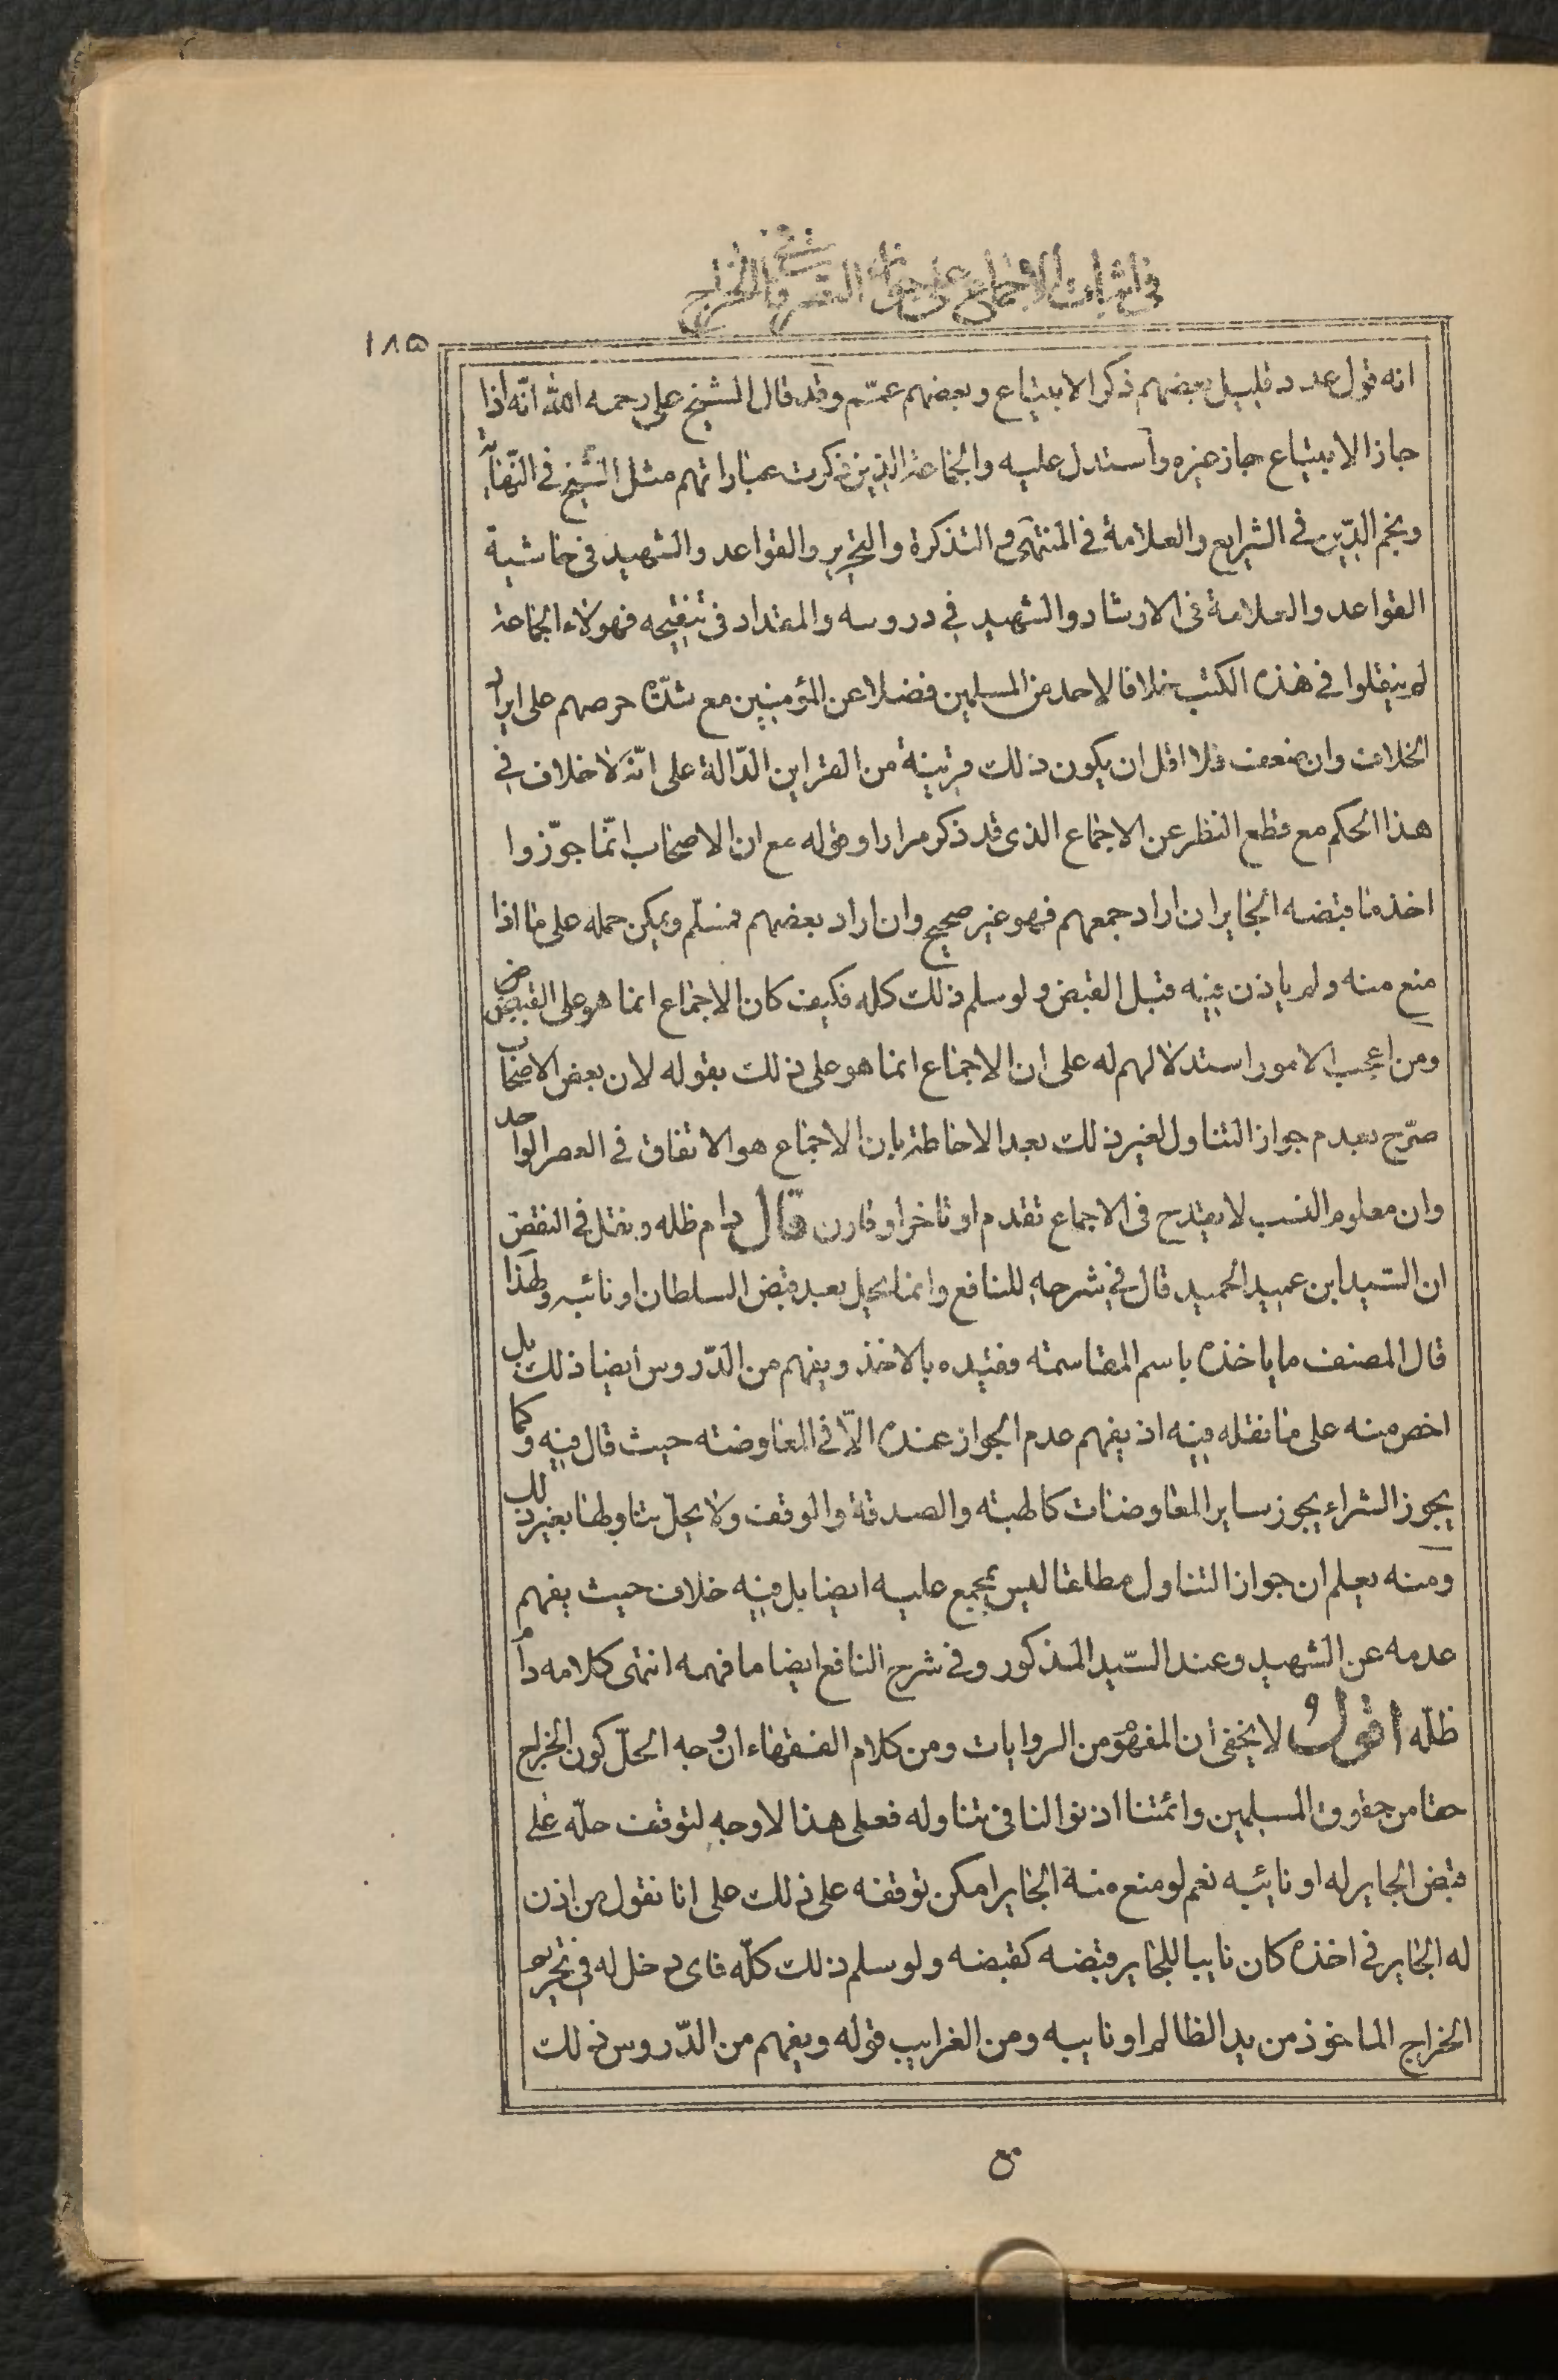 في اثبات الاجماع على جواز التصرف في الخراج
١٨٥
انه قول عدد قليل بعضهم ذكر الابتياع وبعضهم عمّم وقد قال الشيخ على رحمه الله انّه اذا
جاز الابتياع جاز غيره وأستدل عليه والجماعة الذين ذكرت عباراتهم مثل الشيخ في النّهاية
ونجم الدّين في الشرايع والعلامة في المنتهى و التذكرة والتحرير والقواعد والشهيد في حاشية
القواعد والعلامة في الارشاد والشهيد في دروسه والمقداد في تنقيحه فهولاء الجماعة
لم ينقلوا في هذه الكتب خلافا لاحد من المسلمين فضلا عن المؤمنين مع شدّة حرصهم على ايراد
الخلاف وان ضعف فلا اقل ان يكون ذلك قرينة من القراين الدّالة على انّه لا خلاف في
هذا الحكم مع قطع النظر عن الاجماع الذى قد ذكر مرارا وقوله مع ان الاصحاب انّما جوّزوا
اخذ ما قبضه الجاير ان اراد جمعهم فهو غير صحيح وان اراد بعضهم فمسلّم ويمكن حمله على ما اذا
منع منه ولم ياذن فيه قبل القبض ولو سلم ذلك كله فكيف كان الاجماع انما هو على القبوض
ومن اعجب الامور استدلالهم له على ان الاجماع انما هو على ذلك بقوله لان بعض الاصحاب
صرّح بعدم جواز التناول لغير ذلك بعد الاحاطة بان الاجماع هو الاتفاق في العصر الواحد
وان معلوم النسب لا يقدح في الاجماع تقدم او تاخر او قارن قال دام ظله ونقل في النقض
ان السّيد ابن عميد الحميد قال في شرحه للنافع وانما يحل بعد قبض السلطان او نائبه ولهذا
قال المصنف ما ياخذه باسم المقاسمة فقيّده بالاخذ ويفهم من الدّروس أيضا ذلك بل
اخص منه على ما نقله فيه اذ يفهم عدم الجواز عنده الاّ في المعاوضة حيث قال فيه وكما
يجوز الشراء يجوز ساير المعاوضات كالهبة والصدقة والوقف ولا يحلّ تناولها بغير ذلك
ومنه يعلم ان جواز التناول مطلقا ليس بمجمع عليه ايضا بل فيه خلاف حيث يفهم
عدمه عن الشهيد وعند السّيد المذكور وفي شرح النافع ايضا ما فهمه انتهى كلامه دام
ظلّه اقول لا يخفى أن المفهوم من الروايات ومن كلام الفقهاء ان وجه الحلّ كون الخراج
حقا من حقوق المسلمين وائمتنا اذنوا لنا في تناوله فعلى هذا لا وجه لتوقف حلّه على
قبض الجاير له او نائبه نعم لو منع منه الجاير امكن توقفه على ذلك على انا نقول من اذن
له الجاير في اخذه كان نايبا للجاير فقبضه كقبضه ولو سلم ذلك كلّه فاى دخل له في تحريم
الخراج الماخوذ من يد الظالم او نايبه ومن الغرايب قوله ويفهم من الدّروس ذلك
مع